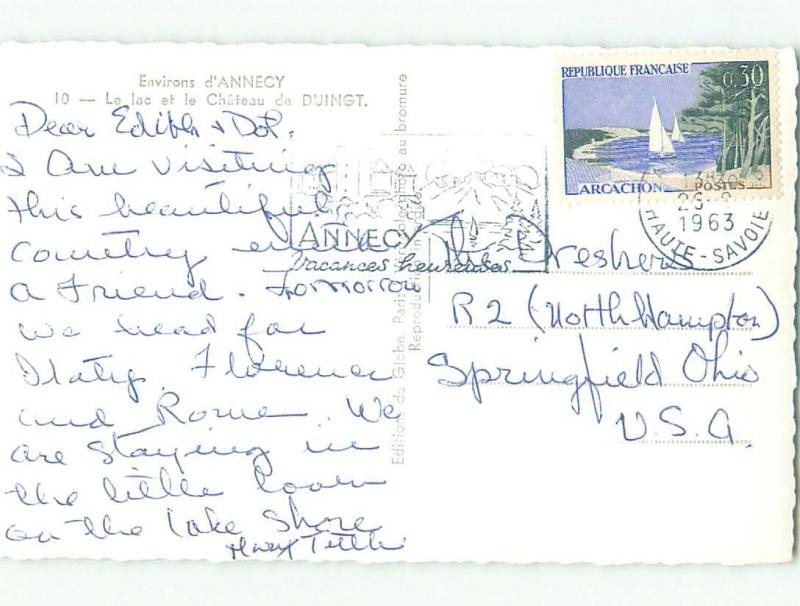 Environs d'ANNECY
10 — Le lac et le Château de DUINGT.
Dear Edith + Dot,
I am visiting
this beautiful
country with
a friend. Tomorrow
we head for
Italy. Florence
and Rome. We
are staying in
the little town
on the lake shore
Mary
Editions du Globe, Paris
Reproduction
photo au bromure
ANNECY
Vacances heureuses
REPUBLIQUE FRANÇAISE
0,30
ARCACHON
POSTES
26-
1963
HAUTE-SAVOIE
The Dreshers
R 2 (North Hampton)
Springfield Ohio
U.S.A